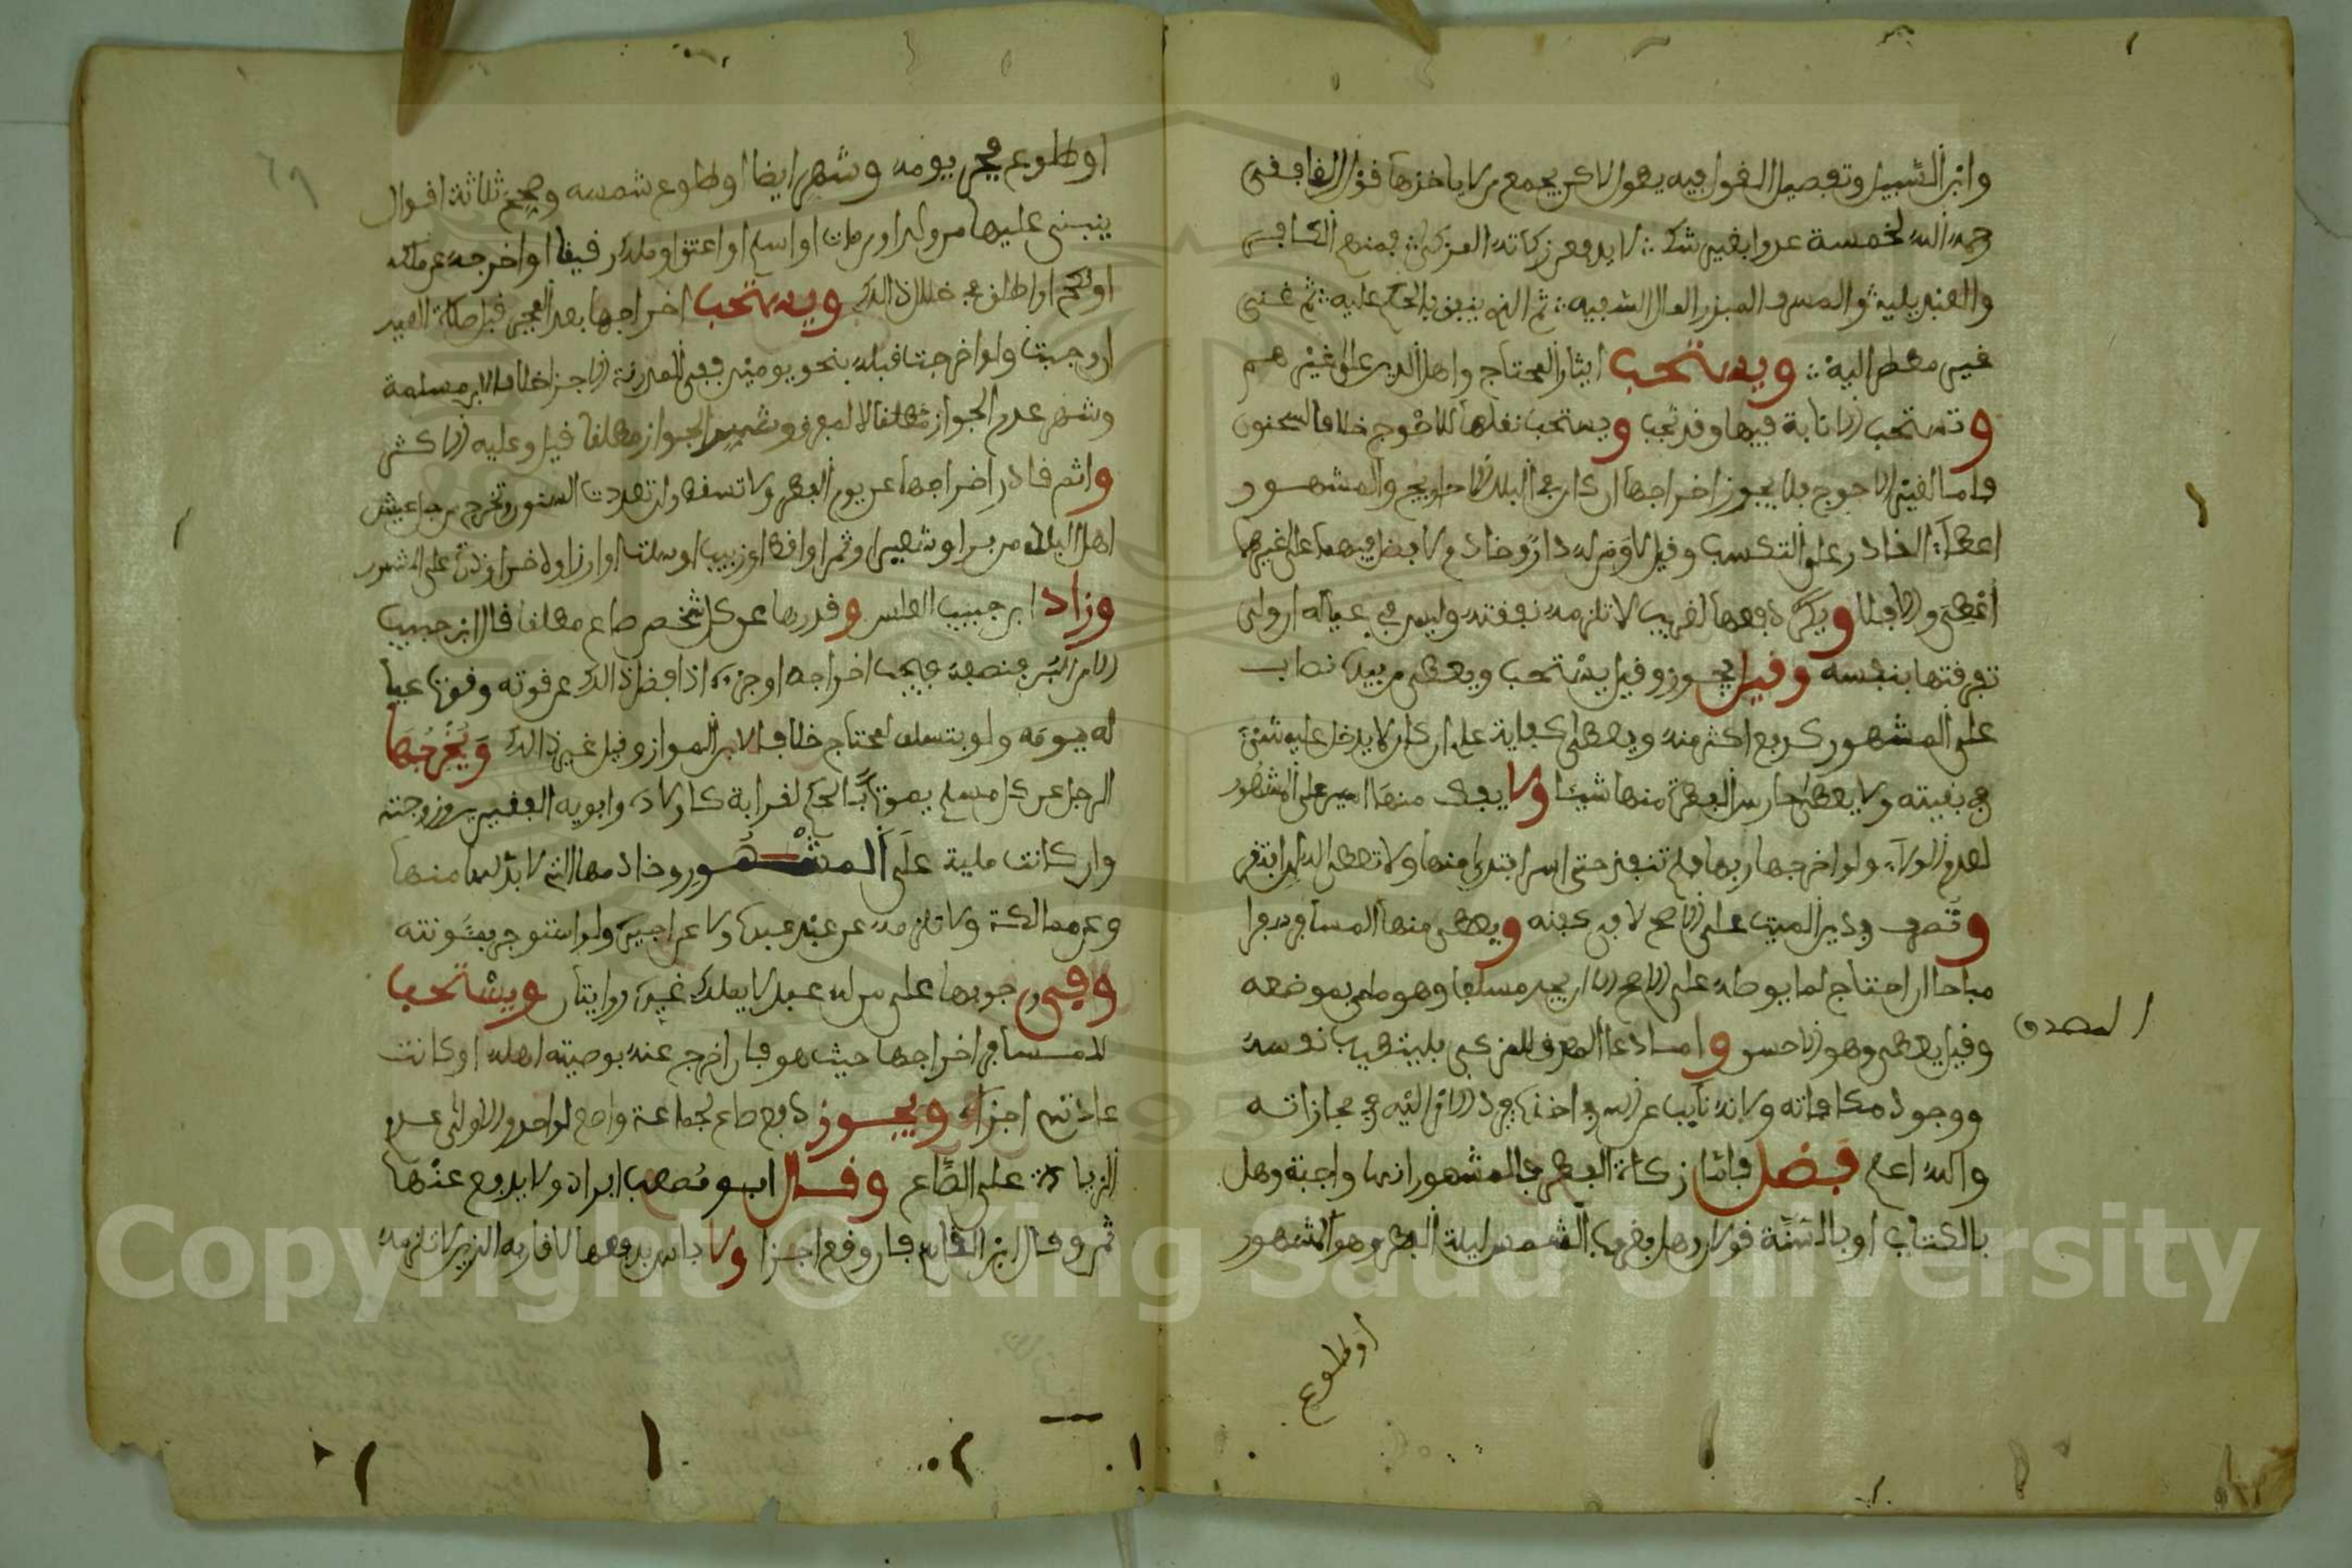 وابن السبيل وتفصيل القول فيه يطول لاكن يجمع من لا ياخذها قول القاضي
رحمه الله لخمسة عدوا بغير شك لا يدفعن زكاته المزكي فمنهم الكافر
والعبد يليه والمسرف المبذر المال السفيه ثم الذي ينفق بالحكم عليه ثم غني
غير مضطر اليه ويستحب ايثار المحتاج واهل الدين على غيرهم
وتستحب الانابة فيها وقد تجب ويستحب نقلها للاحوج خلافا لسحنون
واما لغير الاحوج فلا يجوز اخراجها ان كان في البلد احاويج والمشهور
اعطاء القادر على التكسب وقيل لا ومن له دار وخادم لا فضل فيهما على غيرهما
اعطي والا فلا ويكره دفعها لقريب لا تلزمه نفقته وليس في عياله ان ولي
تفرقتها بنفسه وقيل يجوز وقيل يستحب ويعطى من بيده نصاب
على المشهور كدفع اكثر منه ويعطى كفاية عام ان كان لا يدخل عليه شيء
في بقيته ولا يعطى حارس الفطرة منها شيئا ولا يفك منها اسير على المشهور
لعدم الولاء ولو اخرجها ربها فلم تنفذ حتى اسر افتدي منها ولا تعطى له ان افتقر
وتصرف في دين الميت على الاصح لا في كفنه ويعطى منها المسافر سفرا
مباحا ان احتاج لما يوصله على الاصح الا ان يجد مسلفا وهو ملي بموضعه
وقيل يعطى وهو الاحسن واما دعا المصرف للمزكي فليثيب نفسه
المصدق
ووجود مكافاته ولانه نايب عن الله في اخذها فرد الامر اليه في مجازاته
والله اعلم فصل فاما زكاة الفطر فالمشهور انها واجبة وهل
بالكتاب او بالسنة قولان وهل بغروب الشمس ليلة الفطر وهو المشهور
او طلوع
او طلوع فجر يومه وشهر ايضا او طلوع شمسه وصحح ثلاثة اقوال
ينبني عليها من ولد او مات او اسلم او اعتق او ملك رقيقا او اخرجه عن ملكه
او نكح او طلق في خلال ذالك ويستحب اخراجها بعد الفجر قبل صلاة العيد
ان وجبت ولو اخرجت قبله بنحو يومين ففي المدونة الاجزا خلافا لابن مسلمة
وشهر عدم الجواز مطلقا الا لمفرق وشهر الجواز مطلقا قيل وعليه الاكثر
واثم قادر اخراجها عن يوم الفطر ولا تسقط وان تعددت السنون وتخرج من جل عيش
اهل البلد من بر او شعير او تمر او اقط او زبيب او سلت او ارز او دخن او ذرة على المشهور
وزاد ابن حبيب العلس وقدرها عن كل شخص صاع مطلقا قال ابن حبيب
الا من البر فنصفه فيجب اخراجه او جزءه اذا فضل ذالك عن قوته وقوت عيا
له يومه ولو بتسلف لمحتاج خلافا لابن المواز وقيل غير ذالك ويخرجها
الرجل عن كل مسلم يمونه بالحكم لقرابة كاولاده وابويه الفقيرين وزوجته
وان كانت ملية على المشهور وخادمها التي لا بد لها منها
وعن ممالكه ولا تلزمه عن عبد عبده ولا عن اجيره ولو استوجر بمئونته
وفي وجوبها على من له عبد لا يملك غيره روايتان ويستحب
للمسافر اخراجها حيث هو فان اخرج عنه بوصيته اهله او كانت
عادتهم اجزاه ويجوز دفع صاع لجماعة واصع لواحد والاولى عدم
الزيادة على الصاع وقال ابو مصعب ايراد ولا يدفع عنها
ثمن وقال ابن القاسم فان وقع اجزا ولا باس بدفعها لاقاربه الذين لا تلزمه
Copyright © King Saud University